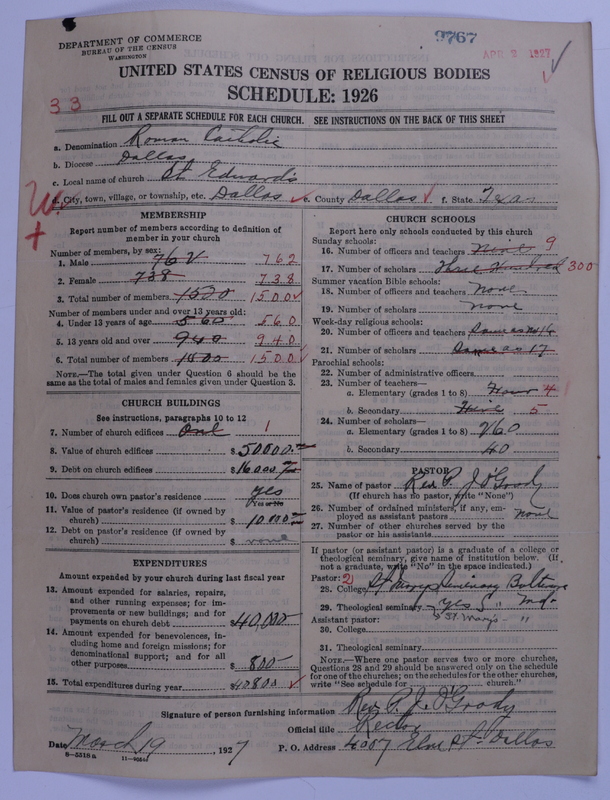 DEPARTMENT OF COMMERCE
BUREAU OF THE CENSUS
WASHINGTON
9767
APR 2 1927
UNITED STATES CENSUS OF RELIGIOUS BODIES
SCHEDULE: 1926
33
FILL OUT A SEPARATE SCHEDULE FOR EACH CHURCH. SEE INSTRUCTIONS ON THE BACK OF THIS SHEET
a. Denomination Roman Catholic
b. Diocese Dallas
c. Local name of church St Edward's
d. City, town, village, or township, etc. Dallas e. County Dallas f. State Texas
MEMBERSHIP
Report number of members according to definition of
member in your church
Number of members, by sex:
1. Male 762 762
2. Female 738 738
3. Total number of members 1500 1500
Number of members under and over 13 years old:
4. Under 13 years of age 560 560
5. 13 years old and over 940 940
6. Total number of members 1500 1500
NOTE.—The total given under Question 6 should be the
same as the total of males and females given under Question 3.
CHURCH BUILDINGS
See instructions, paragraphs 10 to 12
7. Number of church edifices One 1
8. Value of church edifices $50000.00
9. Debt on church edifices $16000.00
10. Does church own pastor's residence yes
Yes or No
11. Value of pastor's residence (if owned by
church) $ 10000.00
12. Debt on pastor's residence (if owned by
church) $ none
EXPENDITURES
Amount expended by your church during last fiscal year
13. Amount expended for salaries, repairs,
and other running expenses; for im-
provements or new buildings; and for
payments on church debt $40,000
14. Amount expended for benevolences, in-
cluding home and foreign missions; for
denominational support; and for all
other purposes $ 800
15. Total expenditures during year 40800
CHURCH SCHOOLS
Report here only schools conducted by this church
Sunday schools:
16. Number of officers and teachers Nine 9
17. Number of scholars Three Hundred 300
Summer vacation Bible schools:
18. Number of officers and teachers none
19. Number of scholars none
Week-day religious schools:
20. Number of officers and teachers Same as No 16
21. Number of scholars Same as 17
Parochial schools:
22. Number of administrative officers
23. Number of teachers—
a. Elementary (grades 1 to 8) Four 4
b. Secondary Five 5
24. Number of scholars—
a. Elementary (grades 1 to 8) 260
b. Secondary 40
PASTOR
25. Name of pastor Rev. P. J. O'Grady
(If church has no pastor, write "None")
26. Number of ordained ministers, if any, em-
ployed as assistant pastors none
27. Number of other churches served by the
pastor or his assistants
If pastor (or assistant pastor) is a graduate of a college or
theological seminary, give name of institution below. (If
not a graduate, write "No" in the space indicated.)
Pastor: 2
28. College St Marys Seminary Baltimore
29. Theological seminary yes " Md.
Assistant pastor: St Mary's "
30. College
31. Theological seminary
NOTE.—Where one pastor serves two or more churches,
Questions 28 and 29 should be answered only on the schedule
for one of the churches; on the schedules for the other churches,
write "See schedule for church."
Signature of person furnishing information Rev. P. J. O'Grady
Official title Rector
Date March 19, 1927 P. O. Address 4007 Elm St Dallas
8—5518a